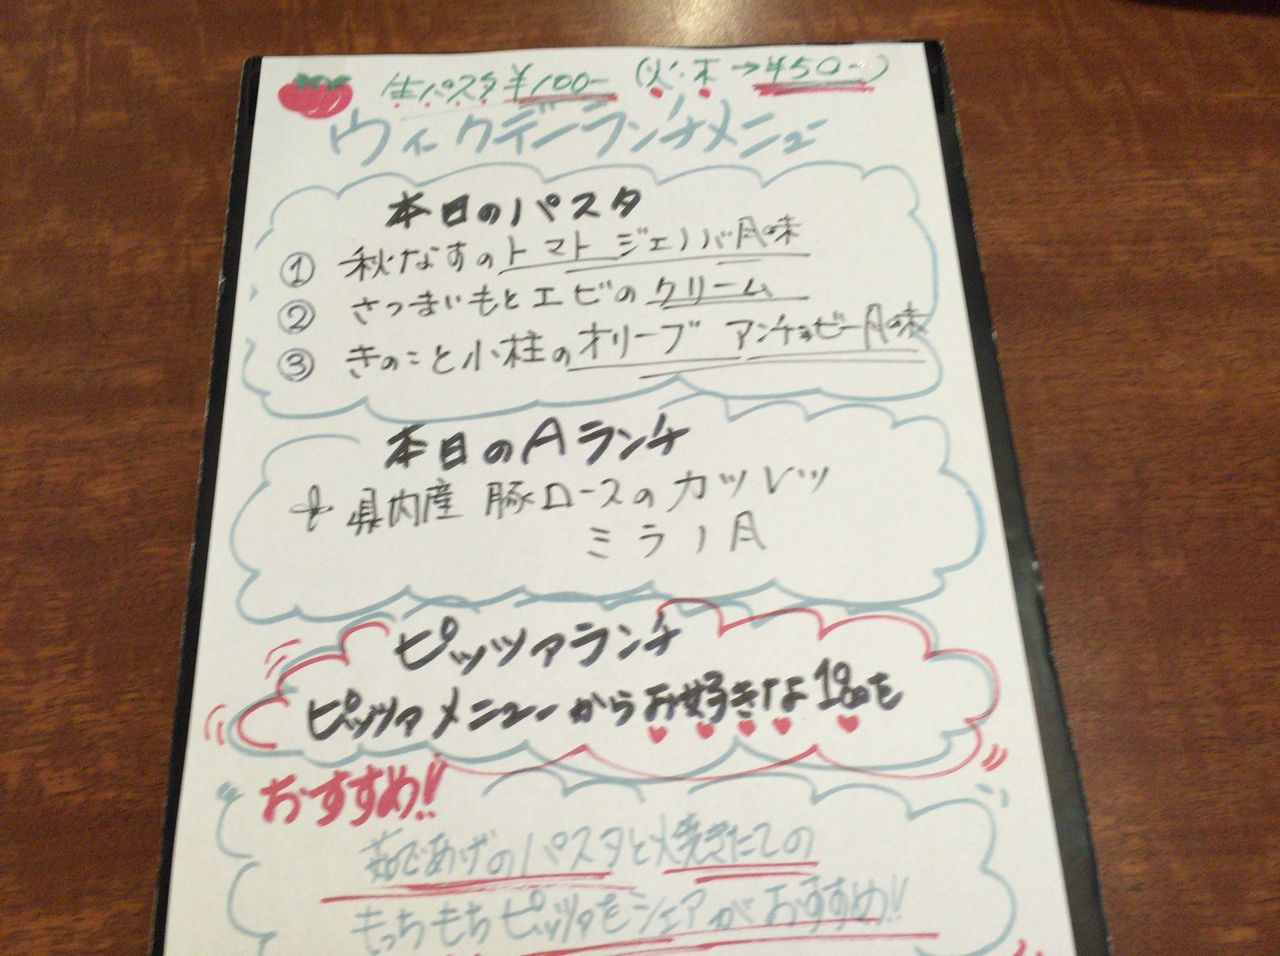 生パスタ¥100- (火・木→¥50-)
ウィークデーランチメニュー
本日のパスタ
① 秋なすのトマト ジェノバ風味
② さつまいもとエビのクリーム
③ きのこと小柱のオリーブ アンチョビー風味
本日のAランチ
県内産 豚ロースのカツレツ
ミラノ風
ピッツァランチ
ピッツァメニューからお好きな1品を
おすすめ!!
茹であげのパスタと焼きたての
もっちもちピッツァをシェアがおすすめ!!